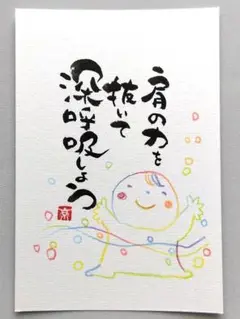 肩の力を
抜いて
深呼吸しよう